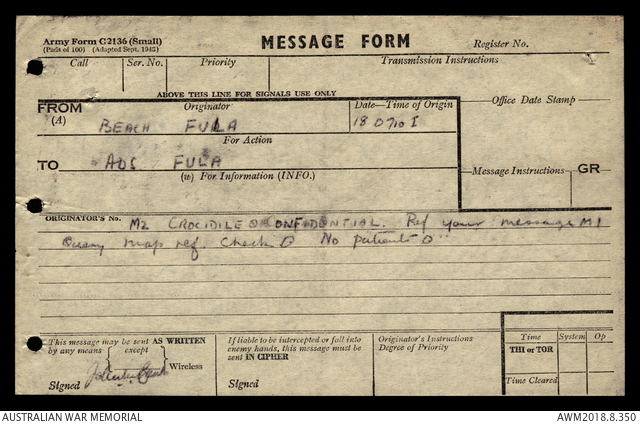 Army Form C2136 (Small)
(Pads of 100) (Adapted Sept. 1942)
MESSAGE FORM
Register No.
Call
Ser. No.
Priority
Transmission Instructions
ABOVE THIS LINE FOR SIGNALS USE ONLY
FROM
(A)
Originator
BEACH FULA
Date—Time of Origin
18 0710 I
Office Date Stamp
For Action
TO
ADS FULA
(w) For Information (INFO.)
Message Instructions
GR
ORIGINATOR'S No.
M2 CROCIDILE CONFIDENTIAL. Ref your message M1
Query map ref. Check No patients
This message may be sent AS WRITTEN
by any means
except
Wireless
Signed
If liable to be intercepted or fall into
enemy hands, this message must be
sent IN CIPHER
Signed
Originator's Instructions
Degree of Priority
Time
System
Op
THI or TOR
Time Cleared
AUSTRALIAN WAR MEMORIAL
AWM2018.8.350